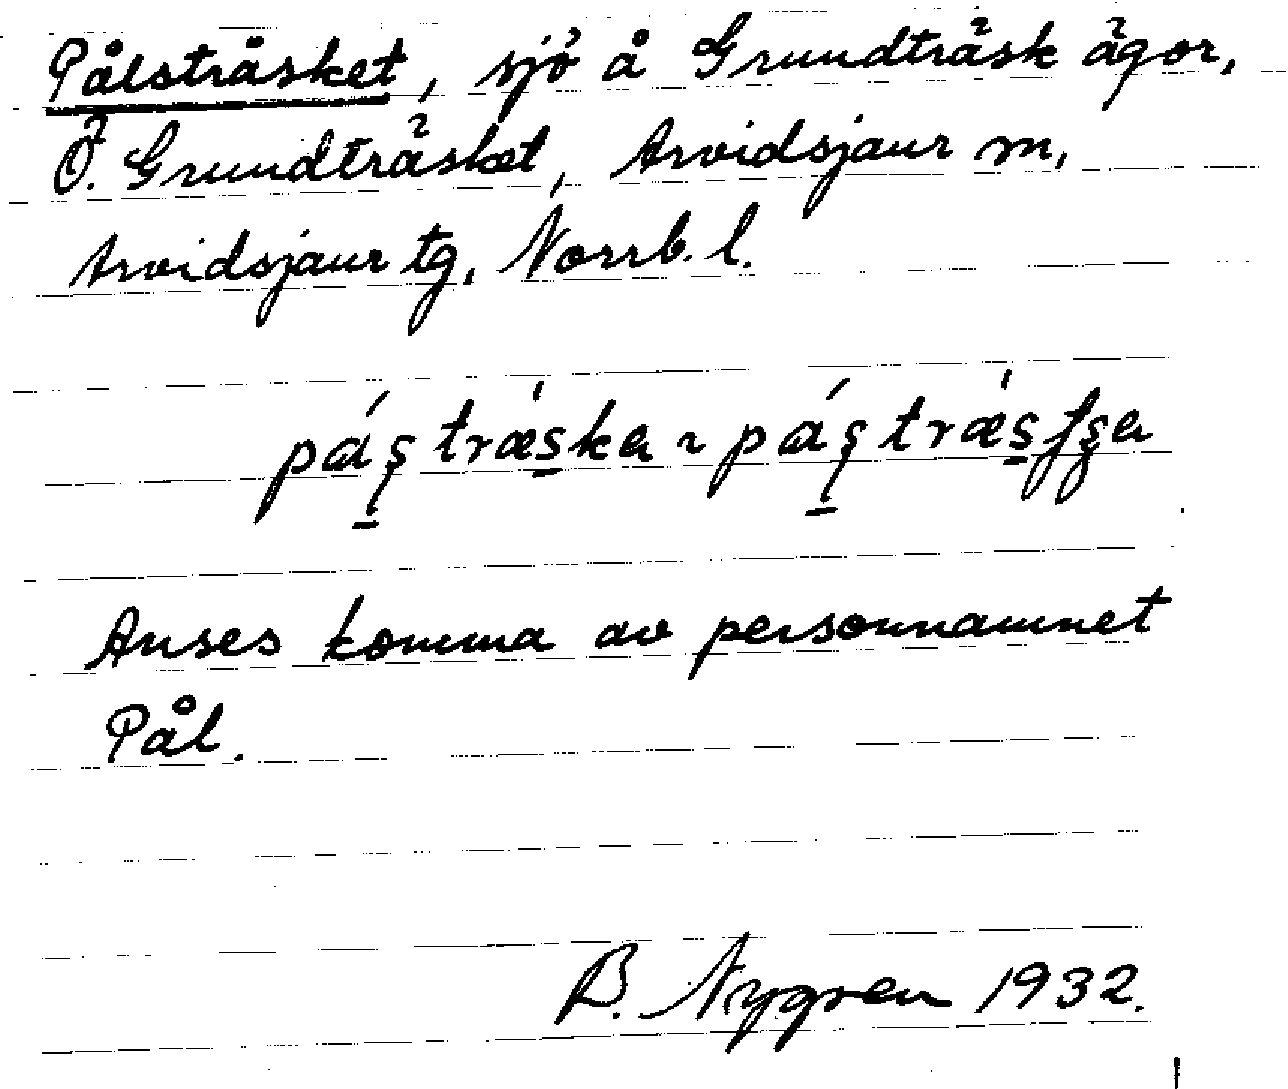 Pålsträsket, sjö å Grundträsk ägor,
Ö. Grundträsket, Arvidsjaur sn,
Arvidsjaur tg, Norrb. l.
Anses komma av personnamnet
Pål.
B. Nygren 1932.